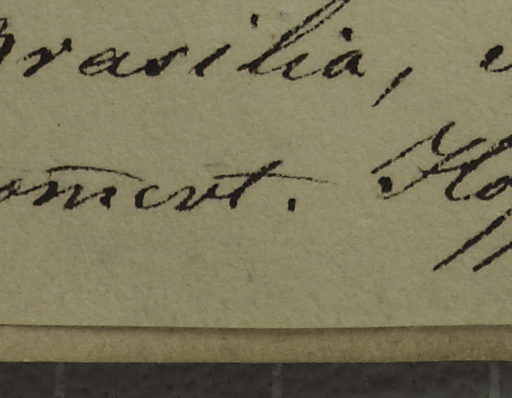 Brasilia,
om̄ert. Ho